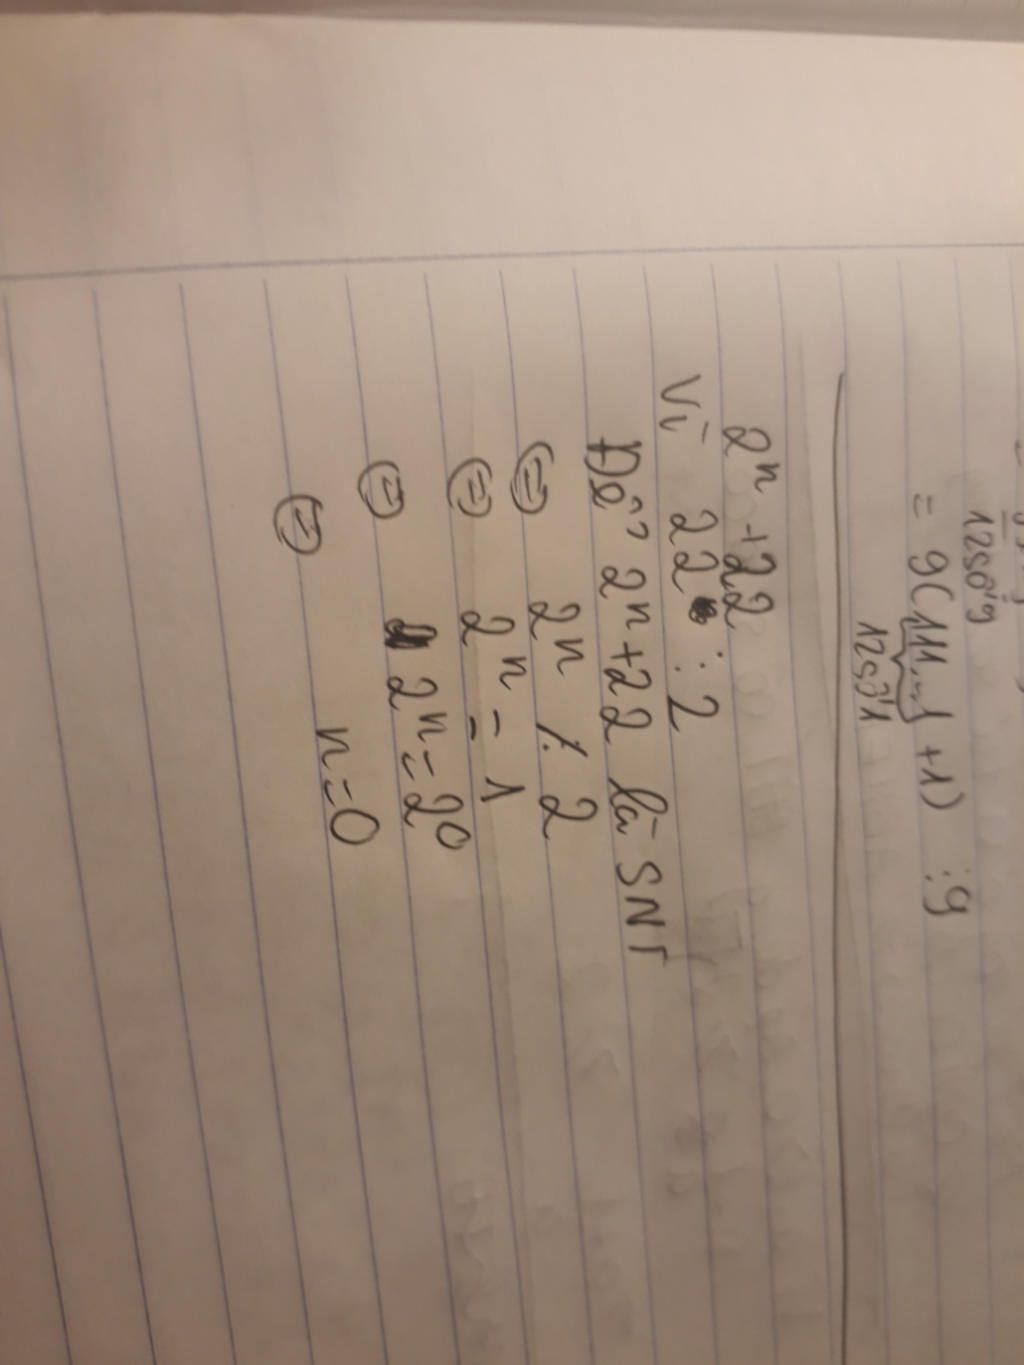 12 số 9
= 9(111...1 + 1) ⋮ 9
12 số 1
2ⁿ + 22
Vì 22 ⋮ 2
Để 2ⁿ + 22 là SNT
⇔ 2ⁿ ⋮̸ 2
⇔ 2ⁿ = 1
⇔ 2ⁿ = 2⁰
⇔ n = 0